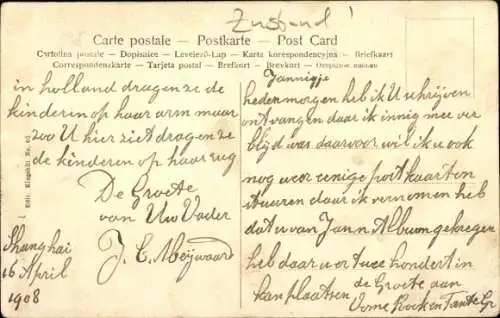 Zustand!
Carte postale – Postkarte – Post Card
Cartolina postale – Dopisnice – Levelező-Lap – Karta korespondencyjna – Briefkaart
Correspondenzkarte – Tarjeta postal – Brefkort – Brevkort –
in holland dragen ze de
kinderen op haar arm maar
zoo U hier ziet dragen ze
de kinderen op haar rug
De Groete
van Uw Vader
J. C. Meijwaard
Shanghai
16 April
1908
Jannigje
heden morgen heb ik U schrijven
ontvangen daar ik innig mee ver
blijd was daarvoor wil ik u ook
nog weer eenige postkaarten
stuuren daar ik vernomen heb
dat u van Jann Album gekregen
heb daar u er twee hondert in
kan plaatsen de Groete aan
Ome en Tante